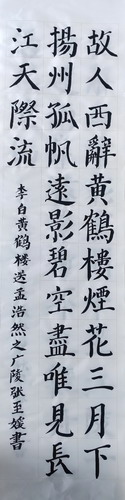 故人西辭黃鶴樓煙花三月下
揚州孤帆遠影碧空盡唯見長
江天際流
李白黄鹤楼送孟浩然之广陵张玉媛書